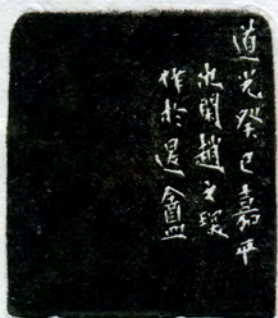 道光癸巳嘉平
次閑趙之琛
作於退盦